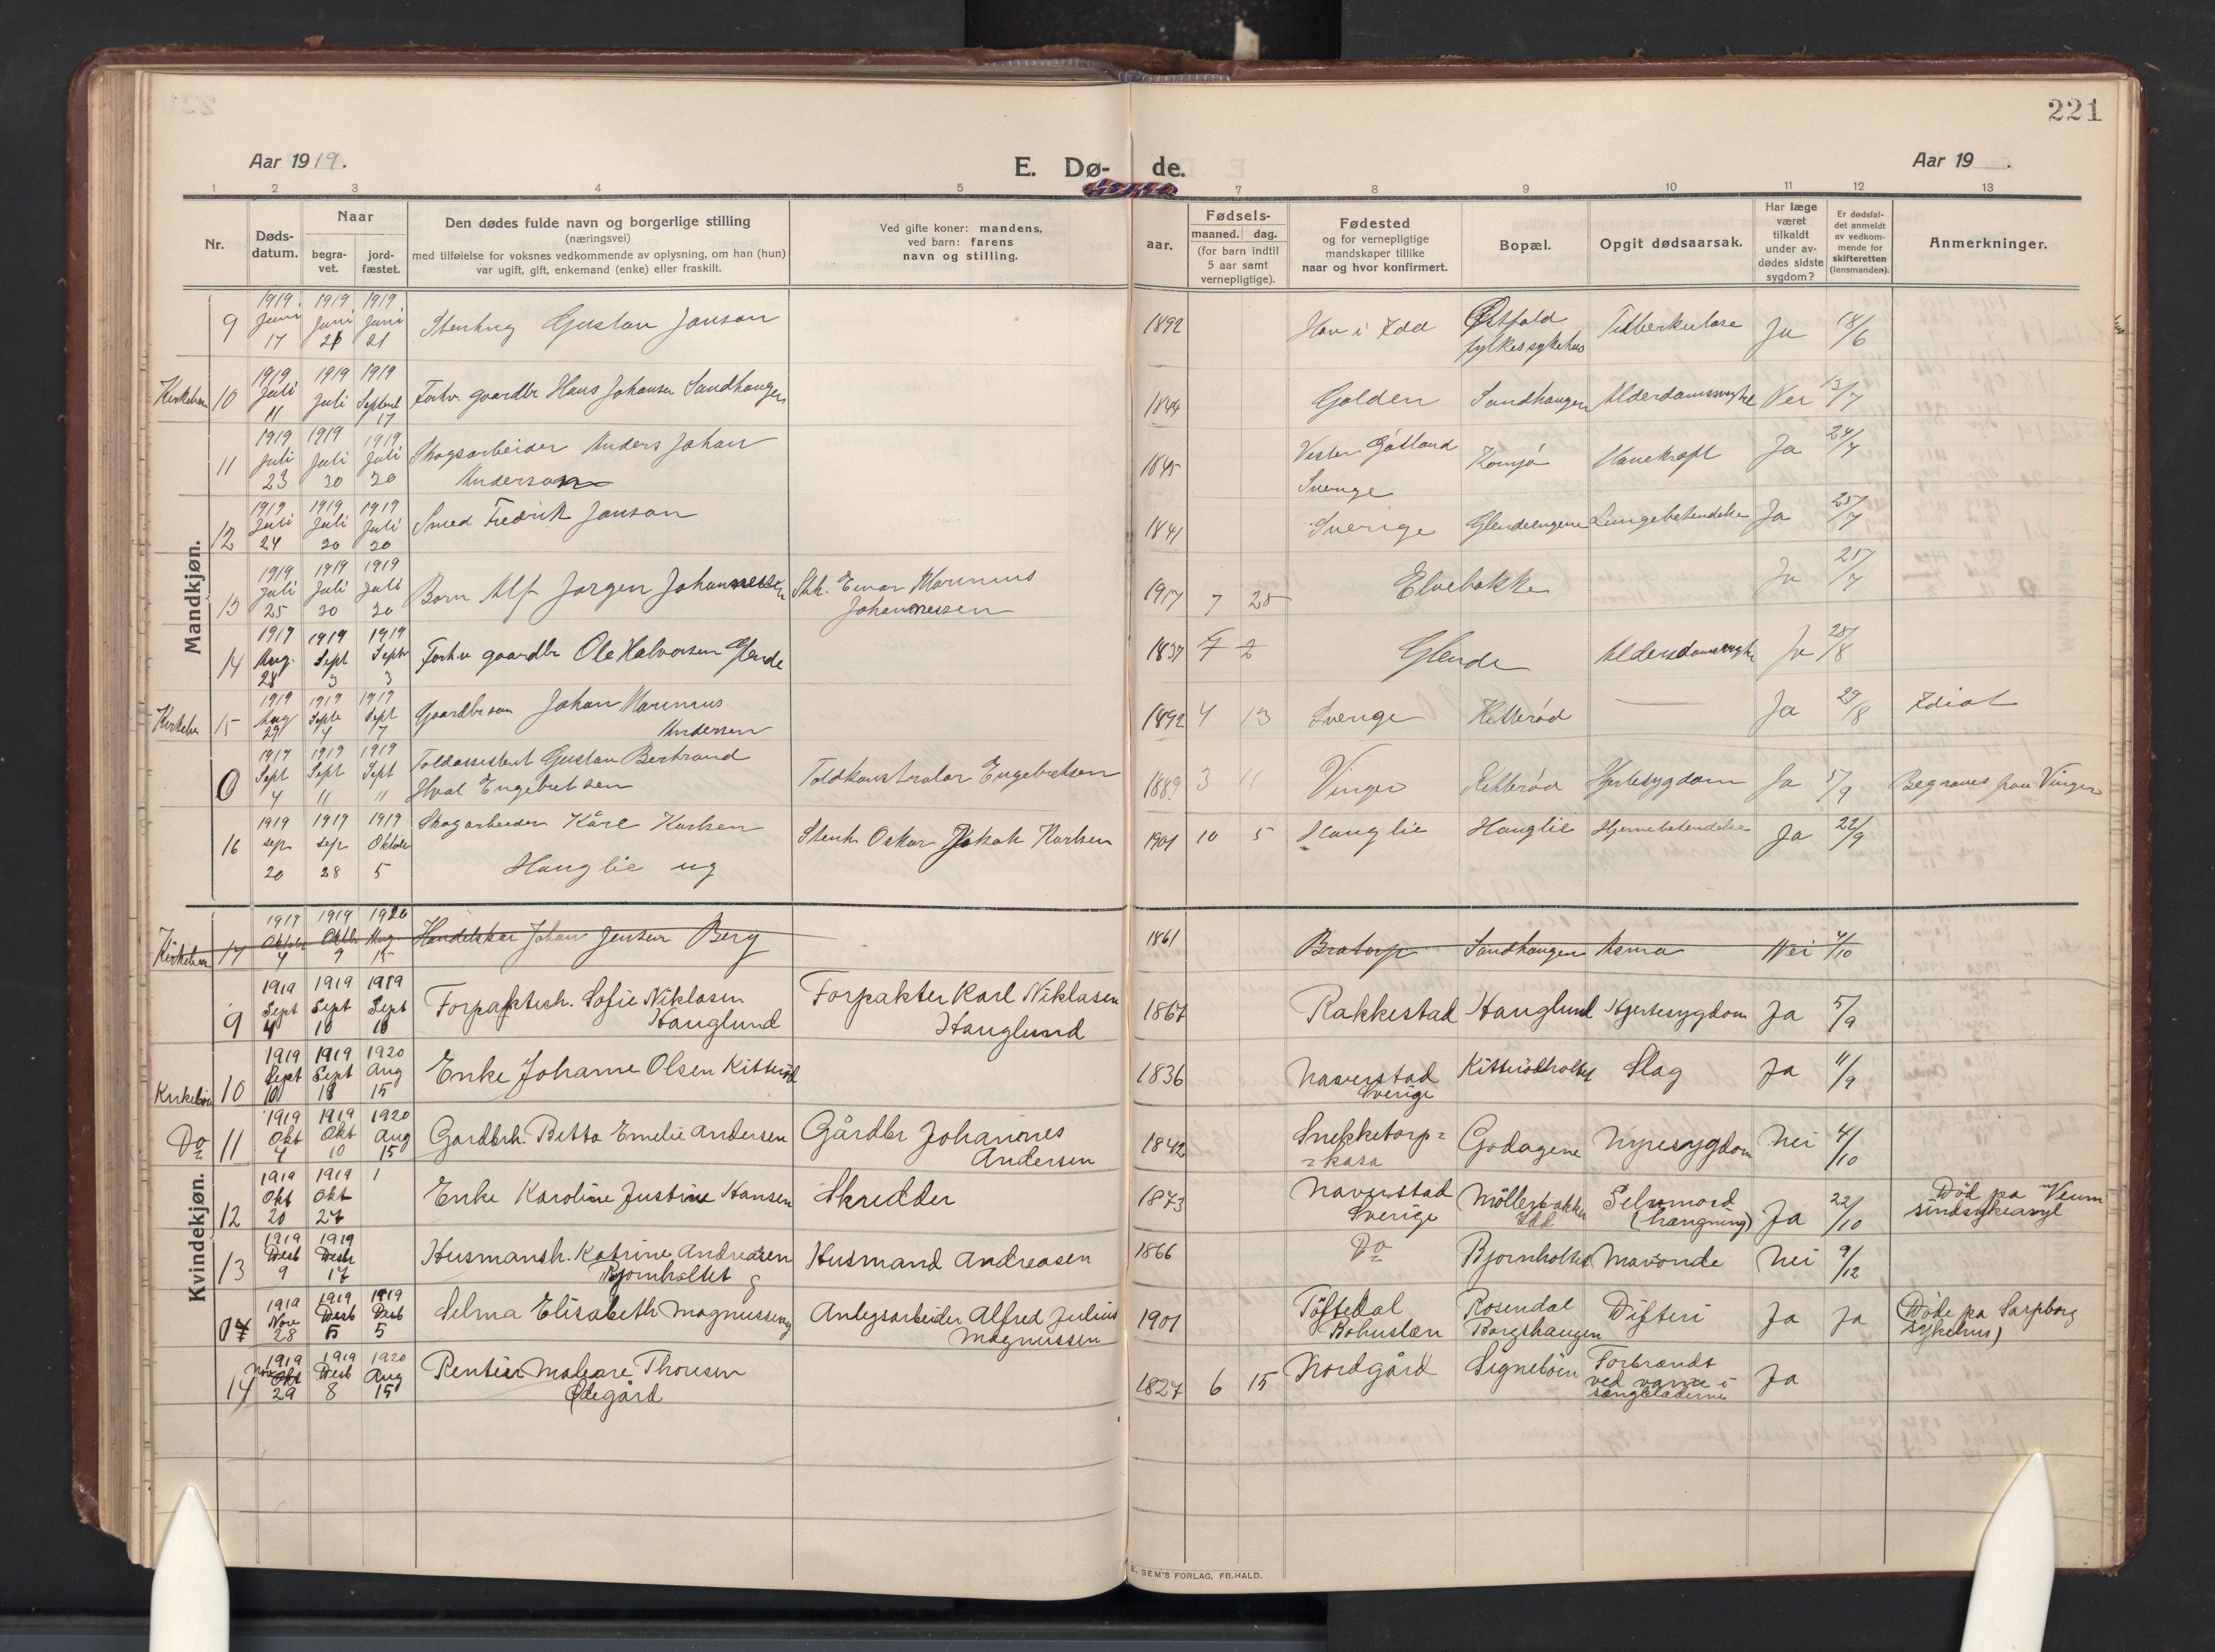 221
Aar 1919.
E. Dø- de.
Aar 19 .
1 2 3 4 5 7 8 9 10 11 12 13
Nr.
Døds-
datum.
Naar
begra-
vet.
jord-
fæstet.
Den dødes fulde navn og borgerlige stilling
(næringsvei)
med tilføielse for voksnes vedkommende av oplysning, om han (hun)
var ugift, gift, enkemand (enke) eller fraskilt.
Ved gifte koner: mandens,
ved barn: farens
navn og stilling.
aar.
Fødsels-
maaned. dag.
(for barn indtil
5 aar samt
vernepligtige).
Fødested
og for vernepligtige
mandskaper tillike
naar og hvor konfirmert.
Bopæl.
Opgit dødsaarsak.
Har læge
været
tilkaldt
under av-
dødes sidste
sygdom?
Er dødsfal-
det anmeldt
av vedkom-
mende for
skifteretten
(lensmanden).
Anmerkninger.
Mandkjøn.
1919 1919 1919
9 Juni Juni Juni Stenhug Gustav Janson 1892 Hov i Idd Østfold Tuberkulose Ja 18/6
17 21 21 fylkessykehus
1919 1919 1919
10 Juli Juli Septbr Forhv. gaardbr Hans Johansen Sandhaugen 1844 Golden Sandhaugen Alderdomssvghe Nei 13/7
11 17
1919 1919 1919
11 Juli Juli Juli Skogsarbeider Anders Johan 1845 Vester Götland Kornsjø Ja 24/7
23 30 30 Anderson Sverige
1919 1919 1919
12 Juli Juli Juli Smed Fredrik Janson 1841 Sverige Glendeengene Lungebetendelse Ja 25/7
24 30 30
1919 1919 1919
13 Juli Juli Juli Barn Alf Jørgen Johannessen Sth. Einar Marinius 1917 7 28 Elvebakke Ja 27/7
25 30 30 Johannessen
1919 1919 1919
14 Aug. Sept Septbr Forhv gaardbr Ole Halvorsen Glende 1837 7 2 Glende Alderdomssvghe Ja 28/8
28 3 3
1919 1919 1919
15 Aug Septb Sept Gaardbr søn Johan Marinius 1892 4 13 Sverige Kitterød — Ja 29/8 Idiot
29 4 7 Andersen
1919 1919 1919
0 Sept Sept Sept Toldassistent Gustav Bertrand Toldkontrolør Engebretsen 1889 3 11 Vinger Kitterød Hjertesygdom Ja 5/9 Begraves paa Vinger
4 11 11 Hval Engebretsen
1919 1919 1919
16 sep sep Oktober Skogarbeider Kåre Karlsen Stenh Oskar Jakob Karlsen 1901 10 5 Hauglie Hauglie Hjernebetendelse Ja 22/9
20 28 5 Hauglie ug
1919 1919 1920
17 Oktober Oktbr Aug Handelskar Johan Jensen Berg 1861 Bratorp Sandhaugen Asma Nei 4/10
4 9 15
Kvindekjøn.
1919 1919 1919
9 Sept Sept Sept Forpakterh. Sofie Niklasen Forpakter Karl Niklasen 1867 Rakkestad Hauglund Hjertesygdom Ja 5/9
4 10 10 Hauglund Hauglund
1919 1919 1920
Kirkebøn 10 Sept Sept Aug Enke Johanne Olsen Kitterød 1836 Naverstad Kitterødholtet Slag Ja 11/9
10 18 15 Sverige
1919 1919 1920
Do 11 Okt Okt Aug Gardbrh. Betta Emelie Andersen Gårdbr Johannes 1842 Snekketorp= Godagene Nyresygdom Nei 4/10
4 10 15 Andersen =kasa
1919 1919 1
12 Okt Okt Enke Karoline Justine Hansen Skredder 1873 Naverstad Möllerbakken Selvmord Ja 22/10 Död på Veum
20 27 Sverige Idd (hængning) sindsykeasyl
1919 1919
13 Desb Desb Husmansh. Katrine Andreasen Husmand Andreasen 1866 Do Bjornholtet Mavonde Nei 9/12
9 17 Bjornholtet g
1919 1919 1919
0 Nov Desb Desb Selma Elisabeth Magnussen Anlegsarbeider Alfred Julius 1901 Töftedal Rosendal Difteri Ja Ja (Döde på Sarpborg
28 5 5 Magnussen Bohuslen Borgshaugen sykehus)
1919 1919 1920
14 Nov Desb Aug Rentier Maleare Thoresen 1827 6 15 Nordgård Signebøen Forbrændt Ja
29 8 15 Ødegård ved varme i
sængklæderne
E. SEM'S FORLAG, FR.HALD.